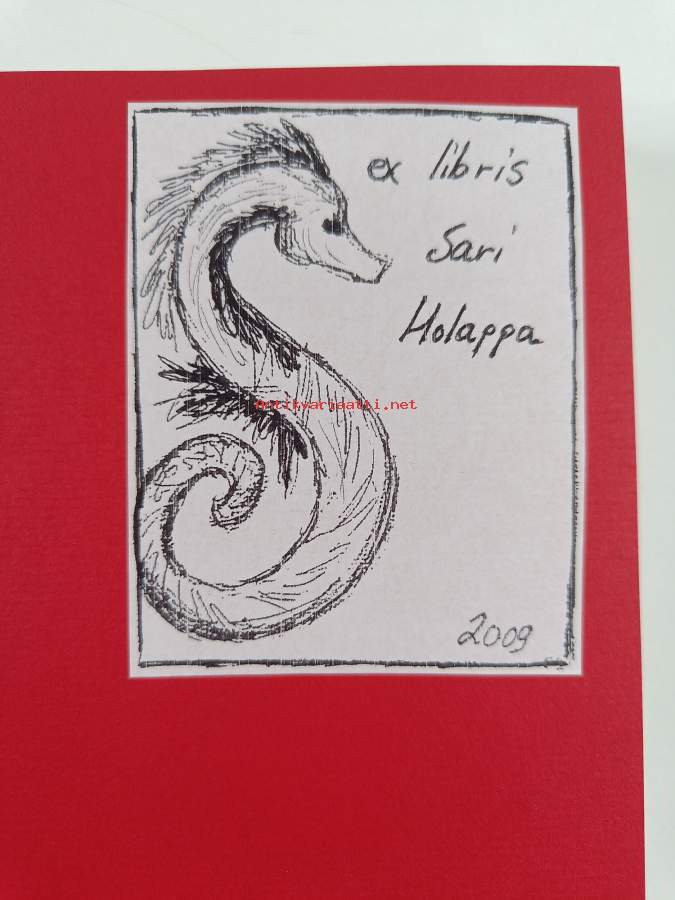 ex libris
Sari
Holappa
Antikvariaatti.net
2009